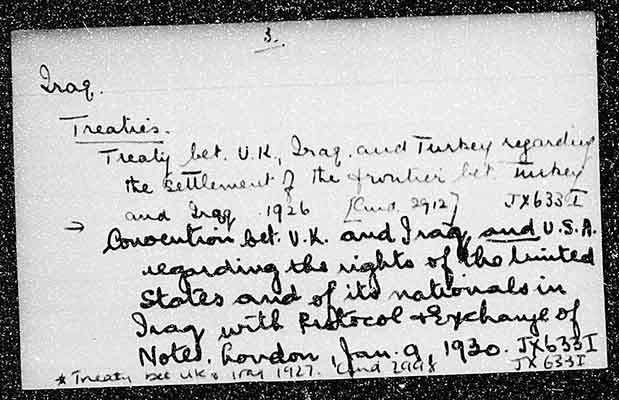 3.
Iraq.
Treaties.
Treaty bet. U.K., Iraq. and Turkey regarding
the settlement of the frontier bet. Turkey
and Iraq 1926 [Cmd. 2912] JX633I
→ Convention bet. U.K. and Iraq, and U.S.A.
regarding the rights of the United
States and of its nationals in
Iraq with Protocol & Exchange of
Notes. London, Jan. 9, 1930. JX633I
* Treaty bet UK & Iraq 1927. Cmd 2998 JX 633I